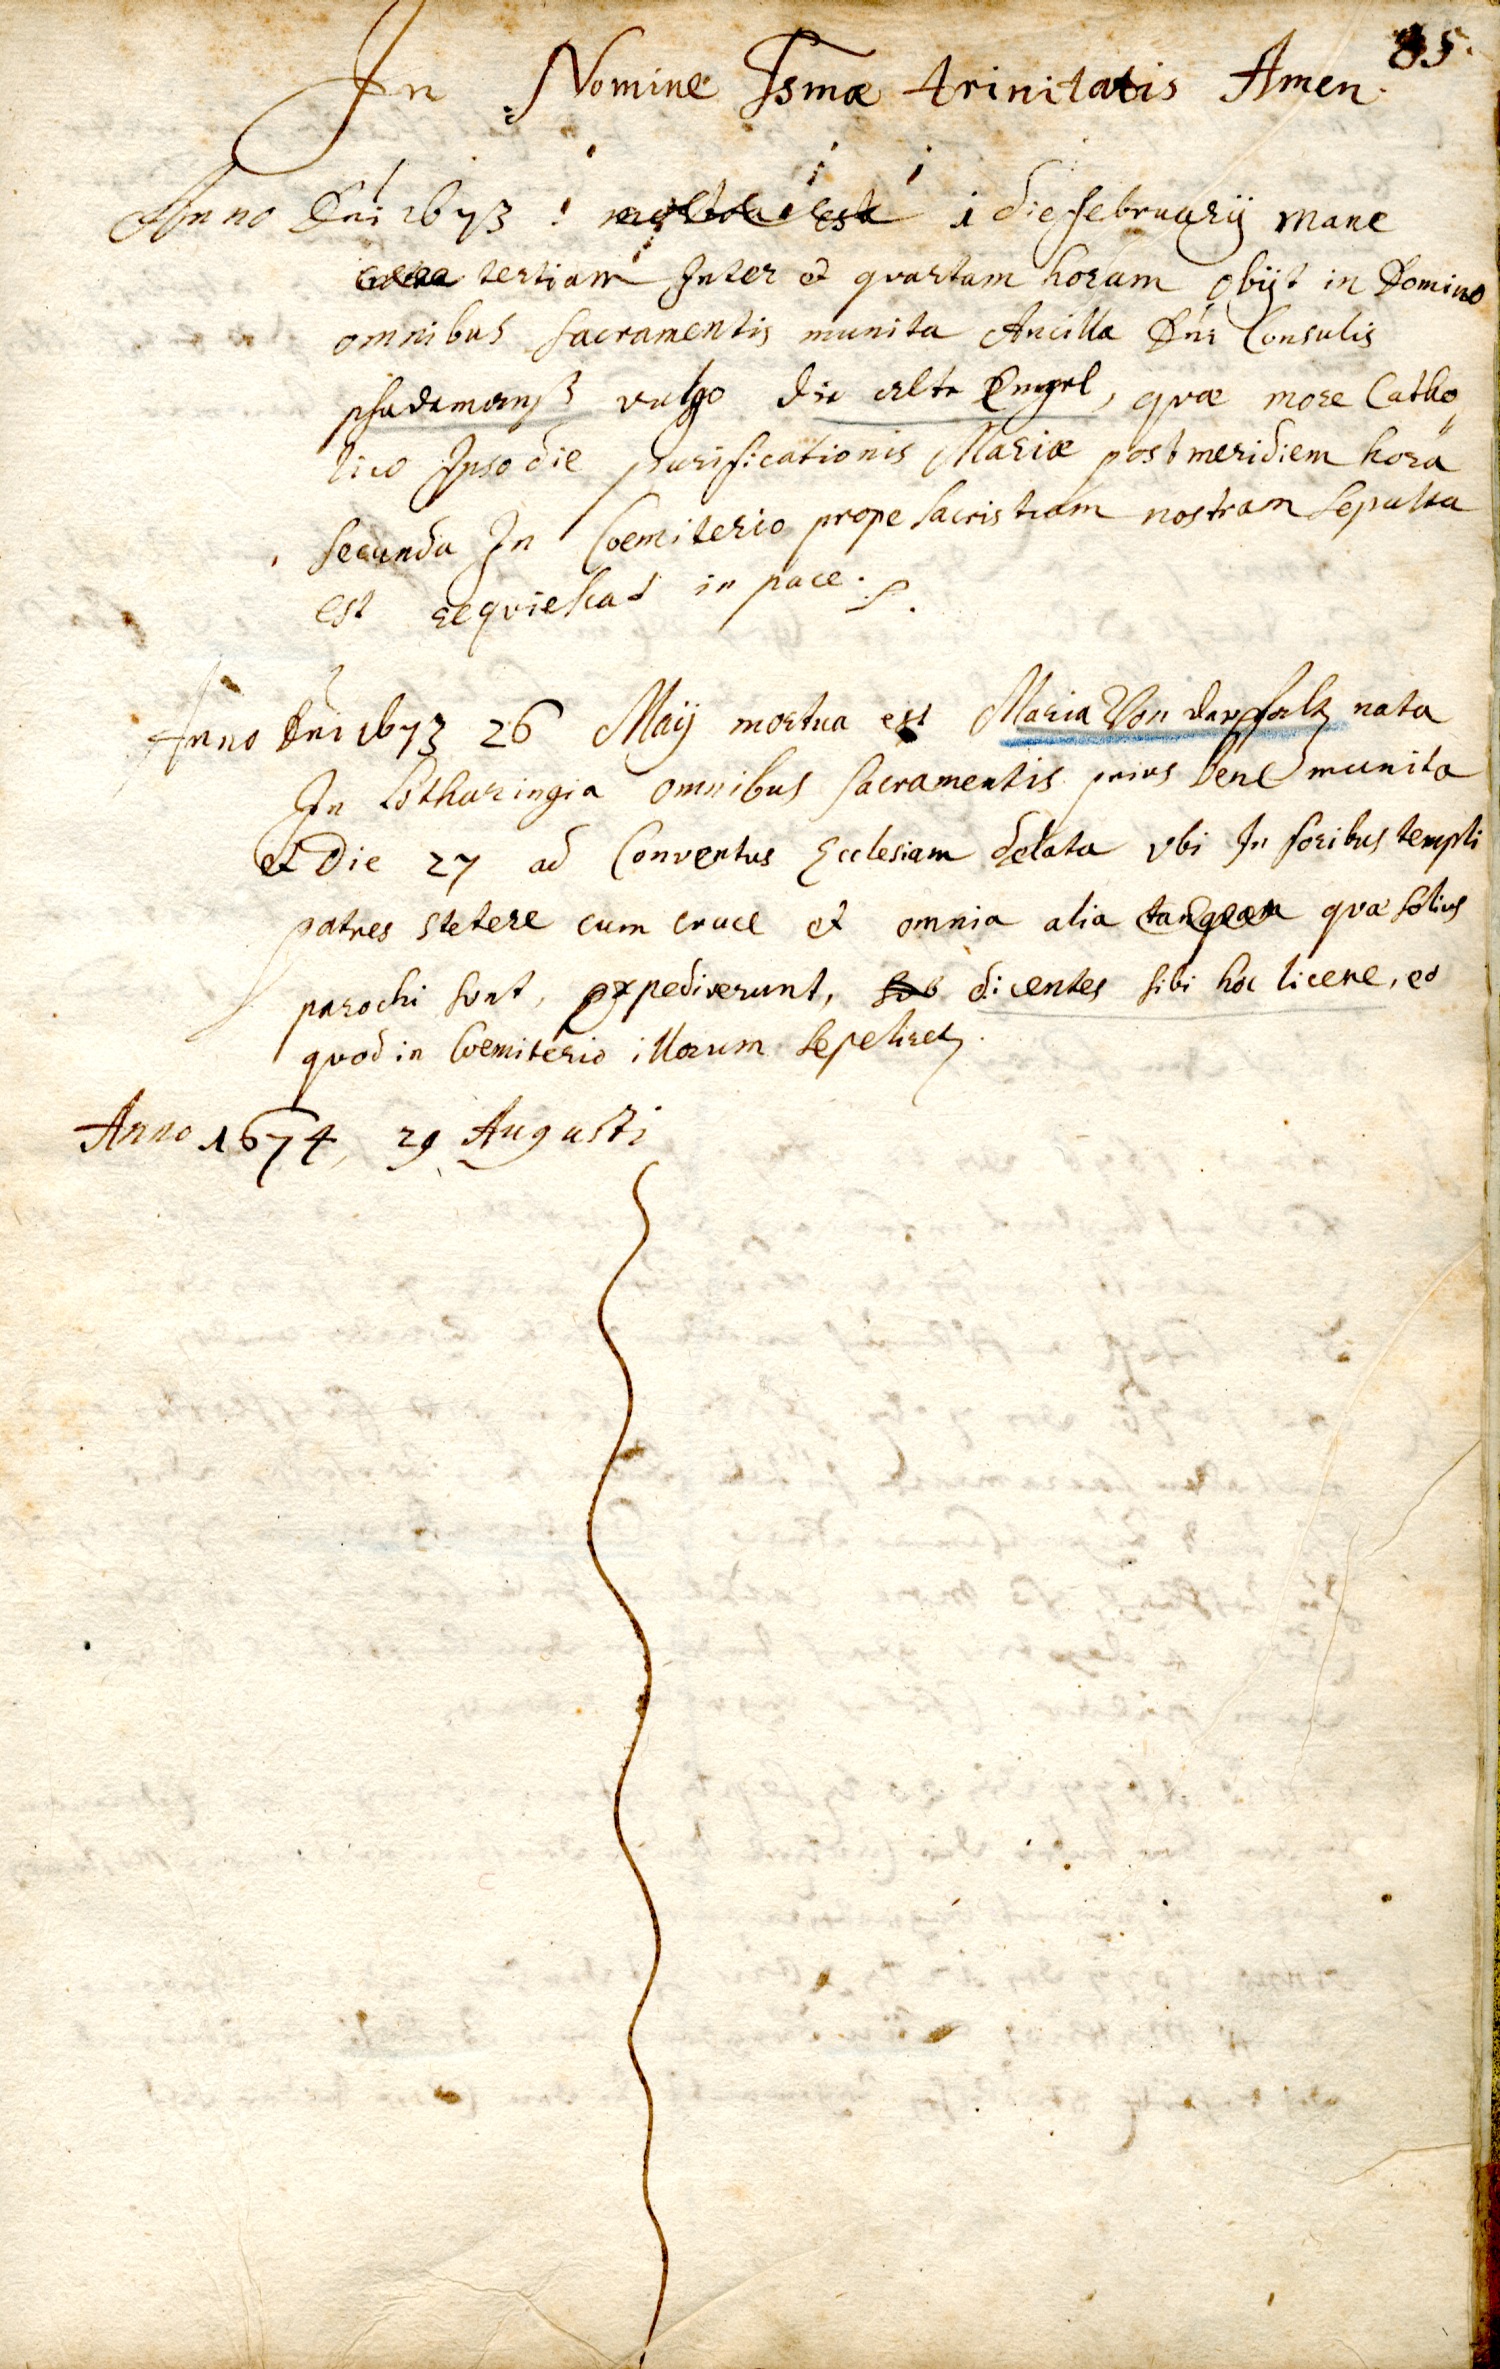 85.
In Nomine Ssmæ trinitatis Amen.
Anno Dni 1673 mortua est 1 die februarij mane
circa tertiam Inter et quartam horam obijt in Domino
omnibus sacramentis munita Ancilla Dni Consulis
vulgo die alte Engel, quæ more Catho
lico Ipso die purificationis Mariæ post meridiem hora
secunda In Coemiterio prope sacristiam nostram sepulta
est requiescat in pace.
Anno Dni 1673 26 Maij mortua est Maria Von der nata
In Lotharingia omnibus sacramentis prius bene munita
et Die 27 ad Conventus Ecclesiam delata vbi In foribus templi
patres stetere cum cruce et omnia alia tanquam quæ solius
parochi sunt, expediverunt, dicentes sibi hoc licere, eo
quod in Coemiterio illorum sepeliret.
Anno 1674, 29 Augusti